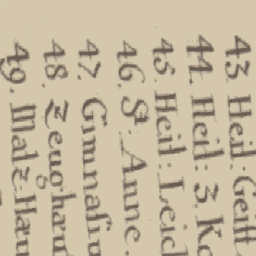 43. Heil: Geist
44. Heil: 3. Kö
45. Heil: Leich
46. St: Anne.
47. Gimnasiu
48. Zeughaus
49. Maltz-Hau